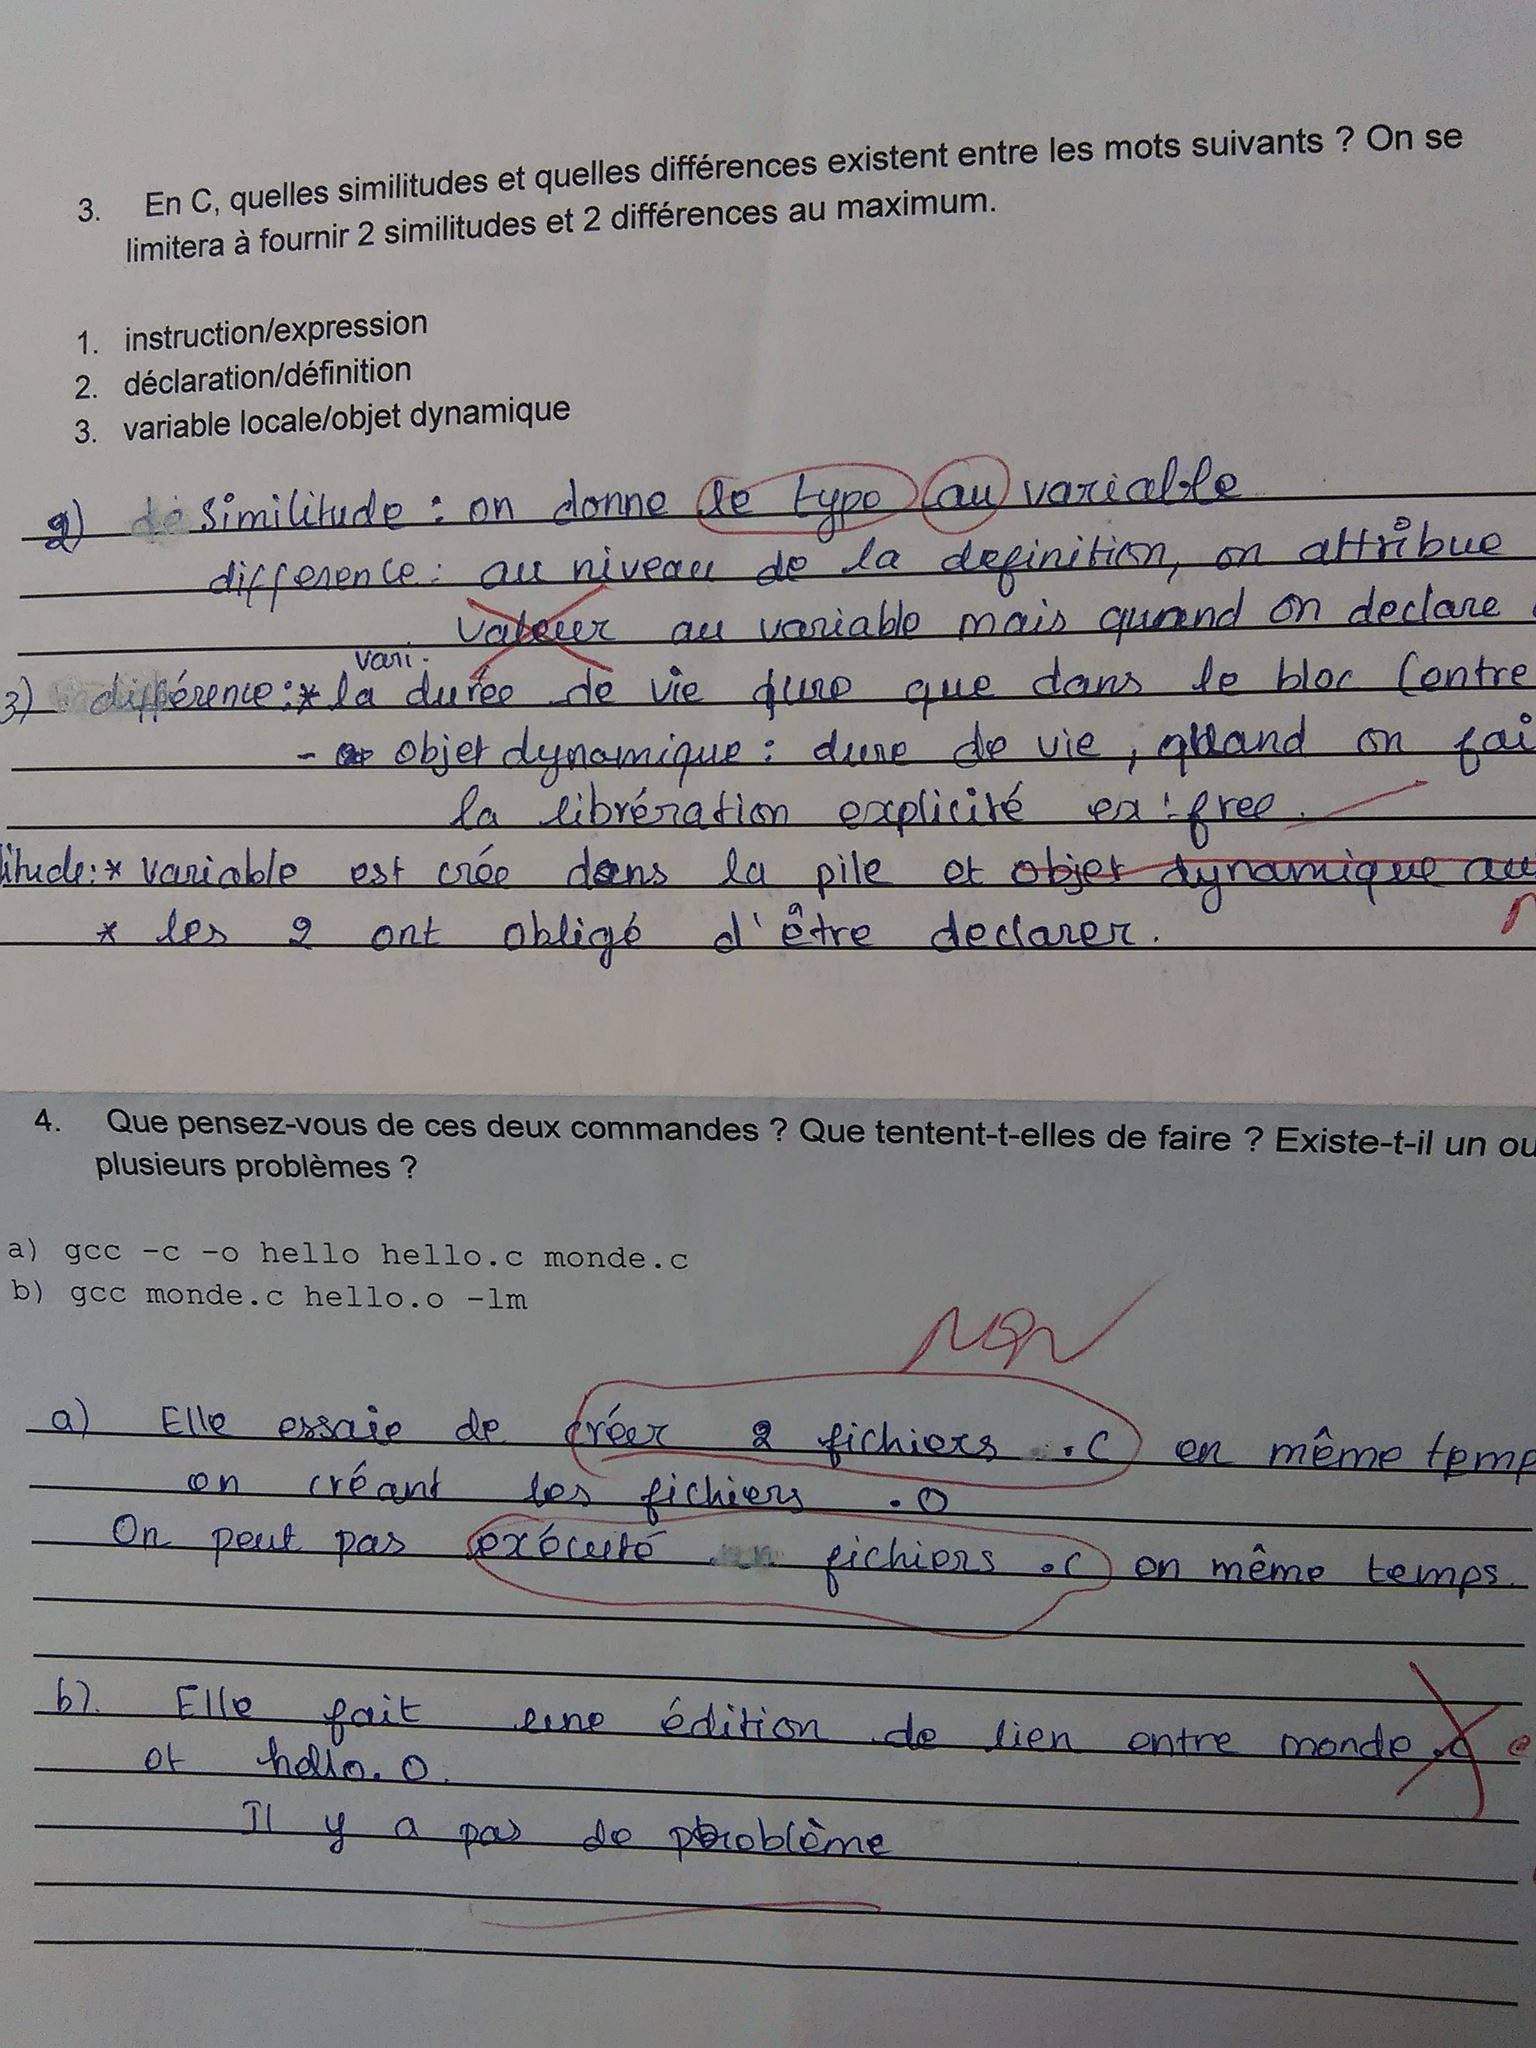 3. En C, quelles similitudes et quelles différences existent entre les mots suivants ? On se
limitera à fournir 2 similitudes et 2 différences au maximum.
1. instruction/expression
2. déclaration/définition
3. variable locale/objet dynamique
2) similitude : on donne le type au variable
difference : au niveau de la definition, on attribue
valeur au variable mais quand on declare
vari.
3) différence : * la durée de vie dure que dans le bloc Contre
- objet dynamique : dure de vie, quand on fai
la librération explicité ex : free.
litude : * variable est crée dans la pile et objet dynamique au
* les 2 ont obligé d'être declarer.
4. Que pensez-vous de ces deux commandes ? Que tentent-t-elles de faire ? Existe-t-il un ou
plusieurs problèmes ?
a) gcc -c -o hello hello.c monde.c
b) gcc monde.c hello.o -lm
NON
a) Elle essaie de créer 2 fichiers .c en même temp
en créant les fichiers .o
On peut pas exécuté fichiers .c en même temps.
b). Elle fait une édition de lien entre monde.c
et hello.o.
Il y a pas de problème